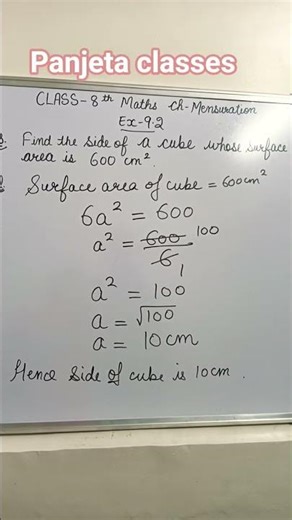 Panjeta classes
CLASS-8th Maths Ch-Mensuration
Ex-9.2
Find the side of a cube whose surface
area is 600 cm².
Surface area of cube = 600cm²
6a² = 600
a² = 600 100
6 1
a² = 100
a = √100
a = 10cm
Hence Side of cube is 10cm.